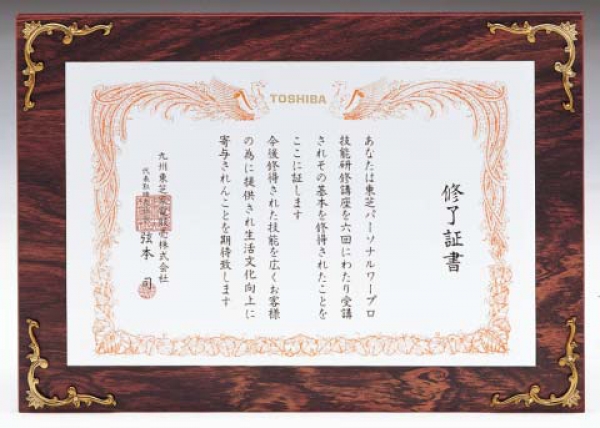 TOSHIBA
修了証書
あなたは東芝パーソナルワープロ
技能研修講座を六回にわたり受講
されその基本を修得されたことを
ここに証します
今後修得された技能を広くお客様
の為に提供され生活文化向上に
寄与されんことを期待致します
九州東芝家電販売株式会社
代表取締役社長 弦本 司